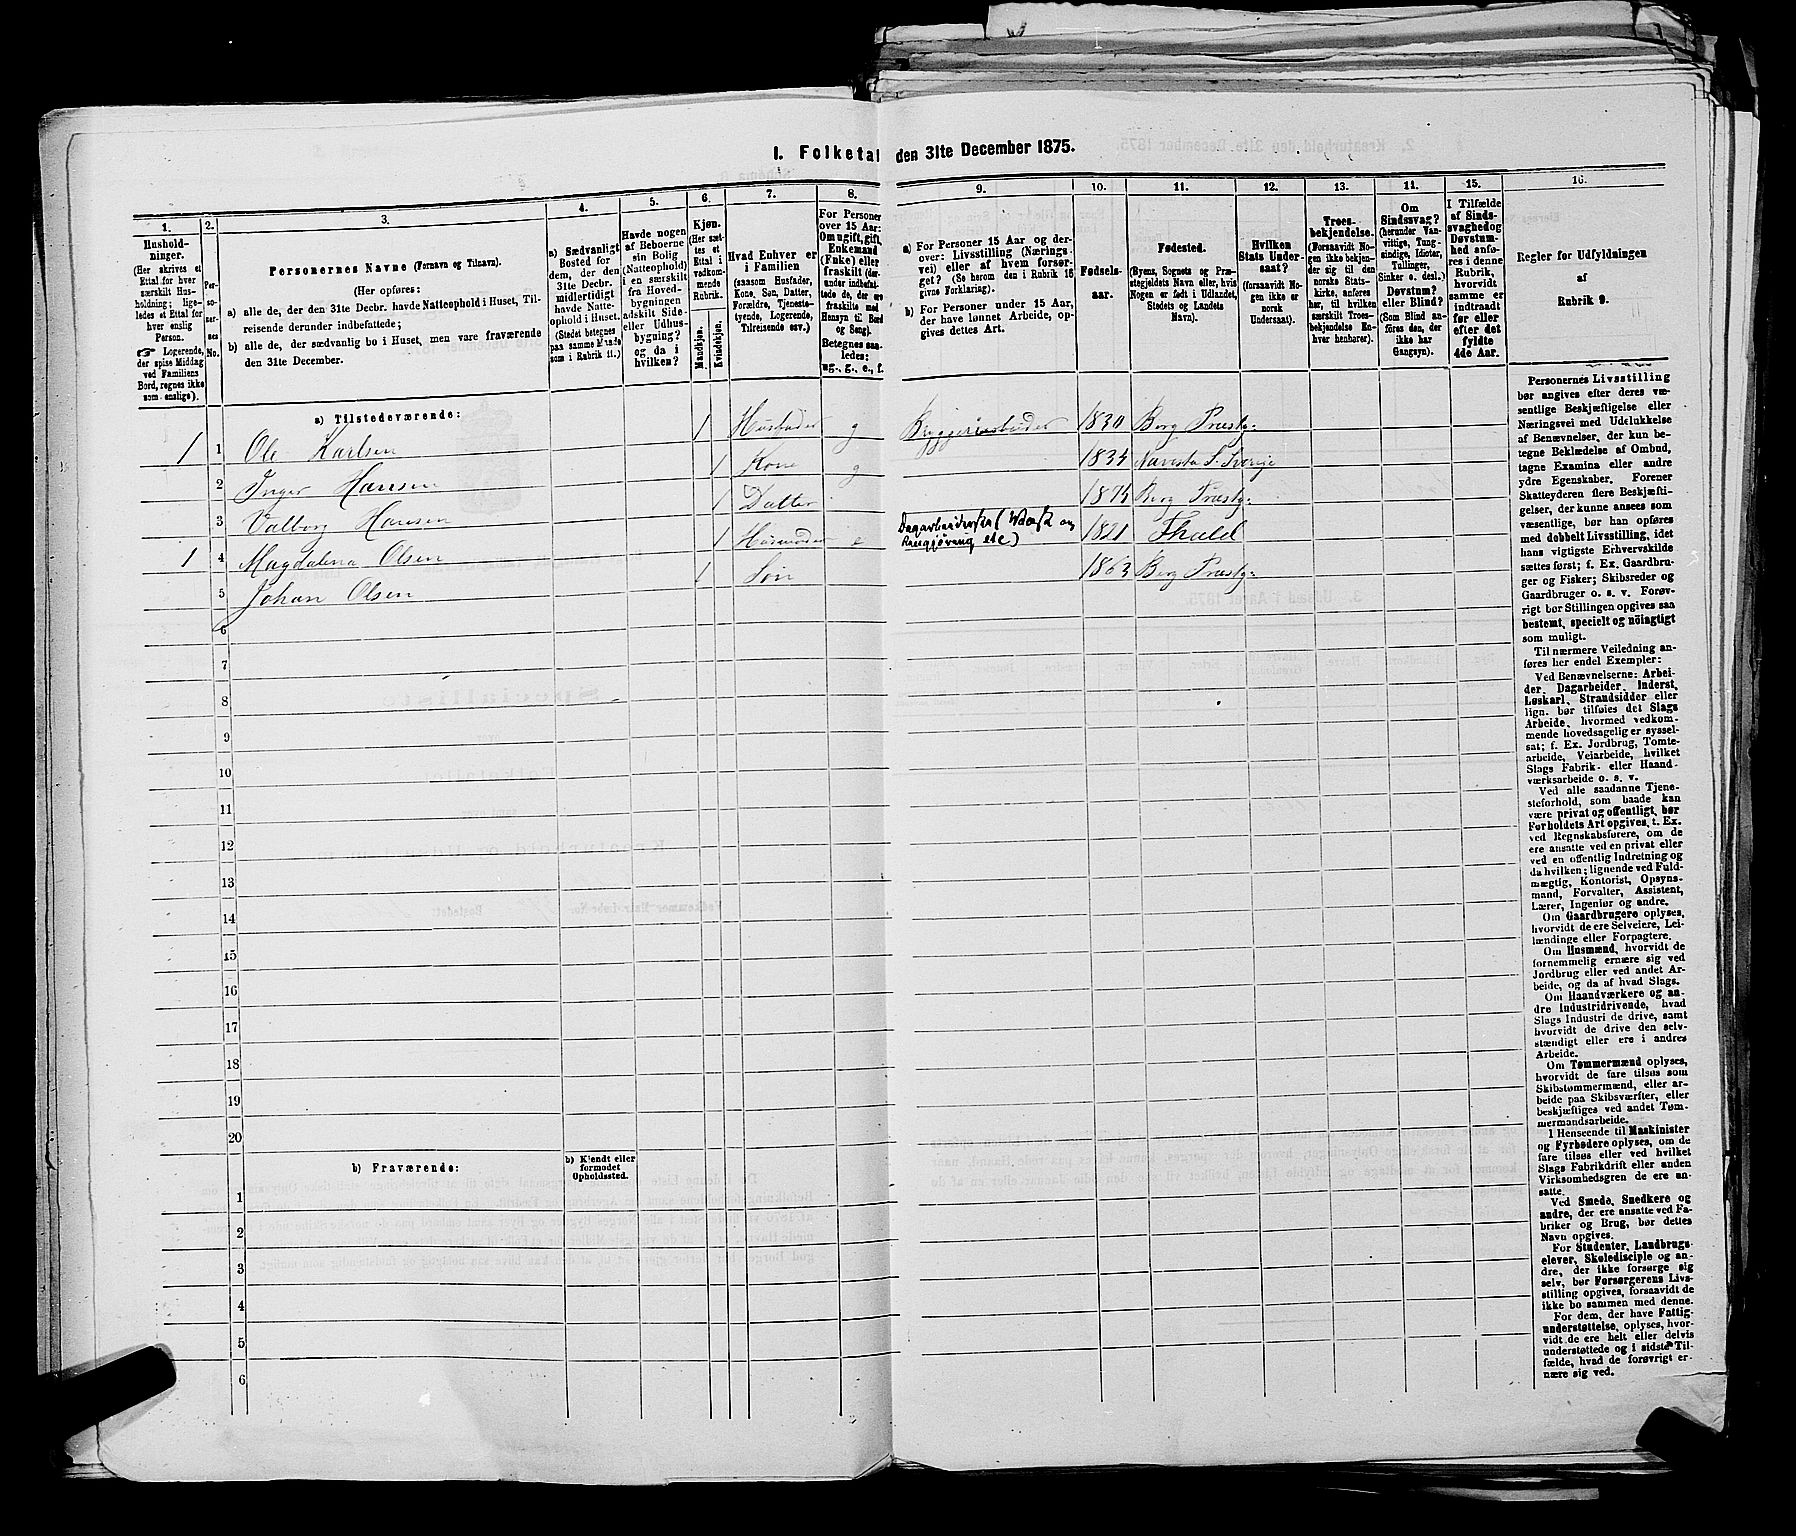 I. Folketal den 31te December 1875.
1.
2.
3.
4.
5.
6.
7.
8.
9.
10.
11.
12.
13.
11.
15.
16.
Hushold-
ninger.
(Her skrives et
Ettal for hver
særskilt Hus-
holdning; lige-
ledes et Ettal for
hver enslig
Person.
☞ Logerende,
der spise Middag
ved Familiens
Bord, regnes ikke
som enslige).
Per-
so-
ner-
nes
No.
Personernes Navne (Fornavn og Tilnavn).
(Her opføres:
a) alle de, der den 31te Decbr. havde Natteophold i Huset, Til-
reisende derunder indbefattede;
b) alle de, der sædvanlig bo i Huset, men vare fraværende
den 31te December.
a) Sædvanligt
Bosted for
dem, der den
31te Decbr.
midlertidigt
havde Natte-
ophold i Huset.
(Stedet betegnes
paa samme Maade
som i Rubrik 11.)
Havde nogen
af Beboerne
sin Bolig
(Natteophold)
i en særskilt
fra Hoved-
bygningen
adskilt Side-
eller Udhus-
bygning?
og da i
hvilken?
Kjøn.
(Her sæt-
tes et
Ettal i
vedkom-
mende
Rubrik.
Mandkjøn.
Kvindekjøn.
Hvad Enhver er
i Familien
(saasom Husfader,
Kone, Søn, Datter,
Forældre, Tjeneste-
tyende, Logerende,
Tilreisende osv.)
For Personer
over 15 Aar:
Om ugift, gift,
Enkemand
(Enke) eller
fraskilt (der-
under indbefat-
tede de, der ere
fraskilte med
Hensyn til Bord
og Seng).
Betegnes saa-
ledes:
ug., g., e., f.
a) For Personer 15 Aar og der-
over: Livsstilling (Nærings-
vei) eller af hvem forsør-
get? (Se herom den i Rubrik 16
givne Forklaring).
b) For Personer under 15 Aar,
der have lønnet Arbeide, op-
gives dettes Art.
Fødsels-
aar.
Fødested.
(Byens, Sognets og Præ-
stegjeldets Navn eller, hvis
Nogen er født i Udlandet,
Stedets og Landets
Navn).
Hvilken
Stats Under-
saat?
(forsaavidt No-
gen ikke er
norsk
Undersaat).
Troes-
bekjendelse.
(Forsaavidt No-
gen ikke bekjen-
der sig til den
norske Stats-
kirke, anføres
her, til hvilken
særskilt Troes-
bekjendelse En-
hver henhører).
Om
Sindssvag?
(herunder Van-
vittige, Tung-
sindige, Idioter,
Tullinger,
Sinker o. desl.)
Døvstum?
eller Blind?
(Som Blind an-
føres den, der
ikke har
Gangsyn).
I Tilfælde
af Sinds-
svaghed og
Døvstum-
hed anfø-
res i denne
Rubrik,
hvorvidt
samme er
indtraadt
før eller
efter det
fyldte
4de Aar.
Regler for Udfyldningen
af
Rubrik 9.
a) Tilstedeværende:
1 1 Ole Karlsen 1 Husfader g Bryggeriarbeider 1830 Berg Præstg:
2 Inger Hansen 1 Kone g 1834 Sverige
3 Valborg Hansen 1 Datter 1875 Berg Præstg:
1 4 Magdalena Olsen 1 Husmoder e Dagarbeiderske (Vask og Rengjøring etc) 1821 Fhald
5 Johan Olsen 1 Søn 1863 Berg Præstg:
6
7
8
9
10
11
12
13
14
15
16
17
18
19
20
b) Fraværende:
b) Kjendt eller
formodet
Opholdssted.
1
2
3
4
5
6
Personernes Livsstilling
bør angives efter deres væ-
sentlige Beskjæftigelse eller
Næringsvei med Udelukkelse
af Benævnelser, der kun be-
tegne Beklædelse af Ombud,
tagne Examina eller andre
ydre Egenskaber. Forener
Skatteyderen flere Beskjæfti-
gelser, der kunne ansees som
væsentlige, bør han opføres
med dobbelt Livsstilling, idet
hans vigtigste Erhvervskilde
sættes først; f. Ex. Gaardbru-
ger og Fisker; Skibsreder og
Gaardbruger o. s. v. Forøv-
rigt bør Stillingen opgives saa
bestemt, specielt og nöiagtigt
som muligt.
Til nærmere Veiledning an-
føres her endel Exempler:
Ved Benævnelserne: Arbei-
der, Dagarbeider, Inderst,
Løskarl, Strandsidder eller
lign. bør tilføies det Slags
Arbeide, hvormed vedkom-
mende hovedsagelig er syssel-
sat; f. Ex. Jordbrug, Tomte-
arbeide, Veiarbeide, hvilket
Slags Fabrik- eller Haand-
værksarbeide o. s. v.
Ved alle saadanne Tjene-
steforhold, som baade kan
være privat og offentligt, bør
Forholdets Art opgives, t. Ex.
ved Regnskabsførere, om de
ere ansatte ved en privat eller
ved en offentlig Indretning og
da hvilken; lignende ved Fuld-
mægtig, Kontorist, Opsyns-
mand, Forvalter, Assistent,
Lærer, Ingeniør og andre.
Om Gaardbrugere oplyses,
hvorvidt de ere Selveiere, Lei-
lændinge eller Forpagtere.
Om Husmænd, hvorvidt de
fornemmelig ernære sig ved
Jordbrug eller ved andet Ar-
beide, og da af hvad Slags.
Om Haandværkere og an-
dre Industridrivende, hvad
Slags Industri de drive, samt
hvorvidt de drive den selv-
stændigt eller ere i andres
Arbeide.
Om Tømmermænd oplyses,
hvorvidt de fare tilsøs som
Skibstømmermænd, eller ar-
beide paa Skibsværfter, eller
beskjæftiges ved andet Tøm-
mermandsarbeide.
I Henseende til Maskinister
og Fyrbødere oplyses, om de
fare tilsøs eller ved hvilket
Slags Fabrikdrift eller anden
Virksomhedsgren de ere an-
satte.
Ved Smede, Snedkere og
andre, der ere ansatte ved Fa-
briker og Brug, bør dettes
Navn opgives.
For Studenter, Landbrugs-
elever, Skoledisciple og an-
dre, der ikke forsørge sig
selv, bør Forsørgerens Livs-
stilling opgives, forsaavidt de
ikke bo sammen med denne.
For dem, der have Fattig-
understøttelse, oplyses, hvor-
vidt de ere helt eller delvis
understøttede og i sidste Til-
fælde, hvad de forøvrigt er-
nære sig ved.